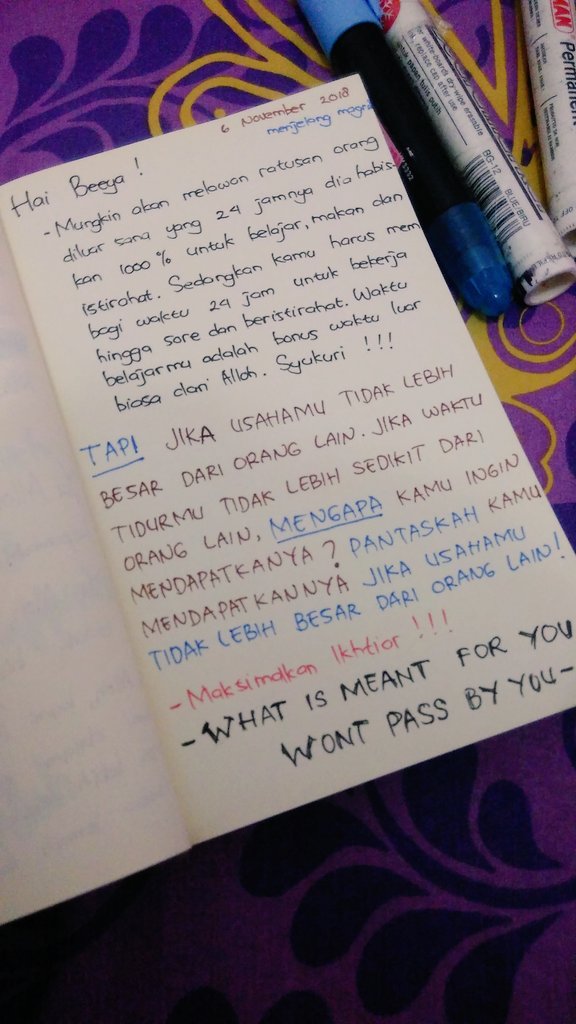 6 November 2018
menjelang magrib
Hai Beeya !
- Mungkin akan melawan ratusan orang
diluar sana yang 24 jamnya dia habis-
kan 1000 % untuk belajar, makan dan
istirahat. Sedangkan kamu harus mem
bagi waktu 24 jam untuk bekerja
hingga sore dan beristirahat. Waktu
belajarmu adalah bonus waktu luar
biasa dari Allah. Syukuri !!!
TAPI JIKA USAHAMU TIDAK LEBIH
BESAR DARI ORANG LAIN. JIKA WAKTU
TIDURMU TIDAK LEBIH SEDIKIT DARI
ORANG LAIN, MENGAPA KAMU INGIN
MENDAPATKANYA ? PANTASKAH KAMU
MENDAPATKANNYA JIKA USAHAMU
TIDAK LEBIH BESAR DARI ORANG LAIN!
- Maksimalkan Ikhtiar !!!
- WHAT IS MEANT FOR YOU
WONT PASS BY YOU -
for white-board dry-wipe erasable
replace cap after use
BG-12 BLUE/BIRU
Permanent